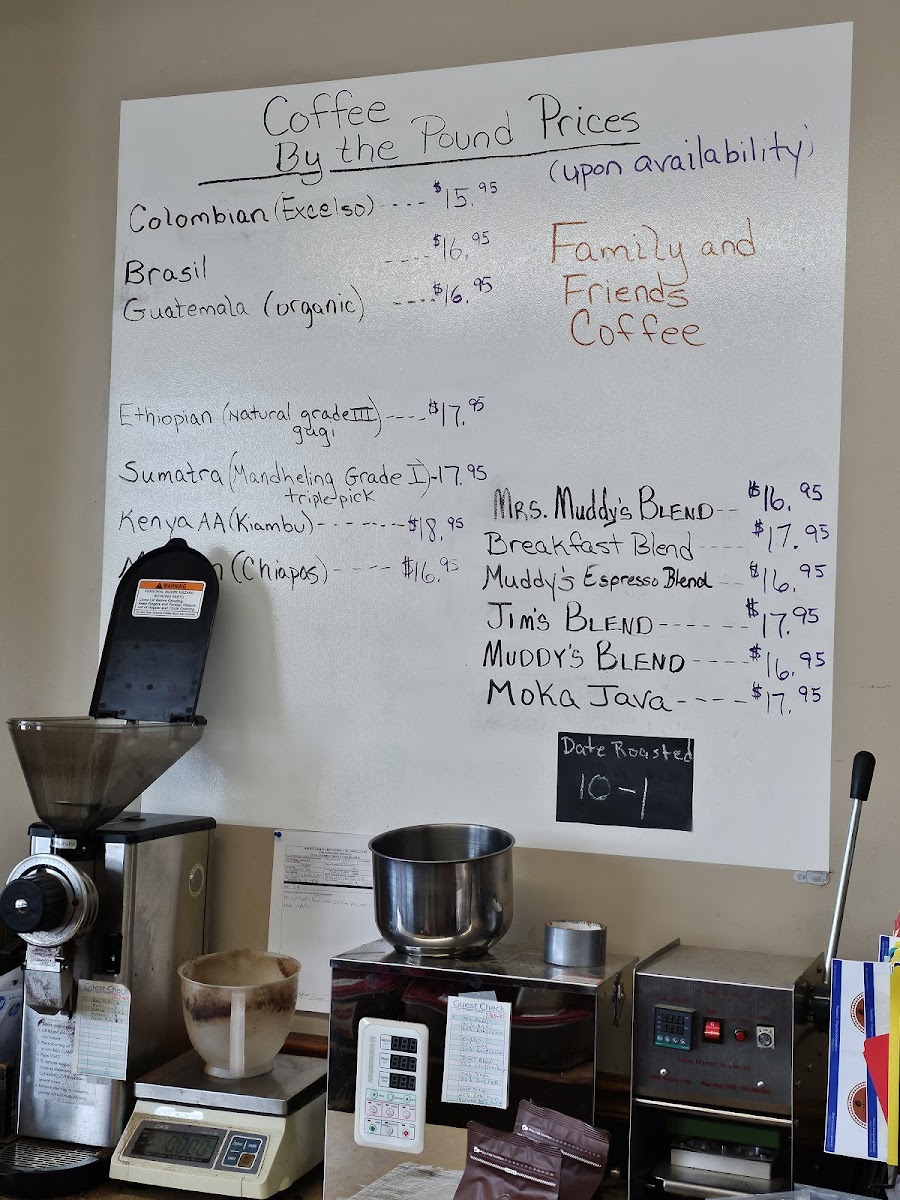 Coffee
By the Pound Prices
(upon availability)
Colombian (Excelso) ---- $15.95
Brasil ---- $16.95
Guatemala (organic) ---- $16.95
Family and
Friends
Coffee
Ethiopian (Natural grade III) ---- $17.95
gugi
Sumatra (Mandheling Grade I) - 17.95
triple pick
Kenya AA (Kiambu) ------- $18.95
(Chiapas) ----- $16.95
Mrs. Muddy's BLEND -- $16.95
Breakfast Blend ---- $17.95
Muddy's Espresso Blend -- $16.95
Jim's BLEND ------ $17.95
MUDDY'S BLEND ---- $16.95
MOKA JAVA ---- $17.95
Date Roasted
10-1
WARNING
Guest Check
Guest Check